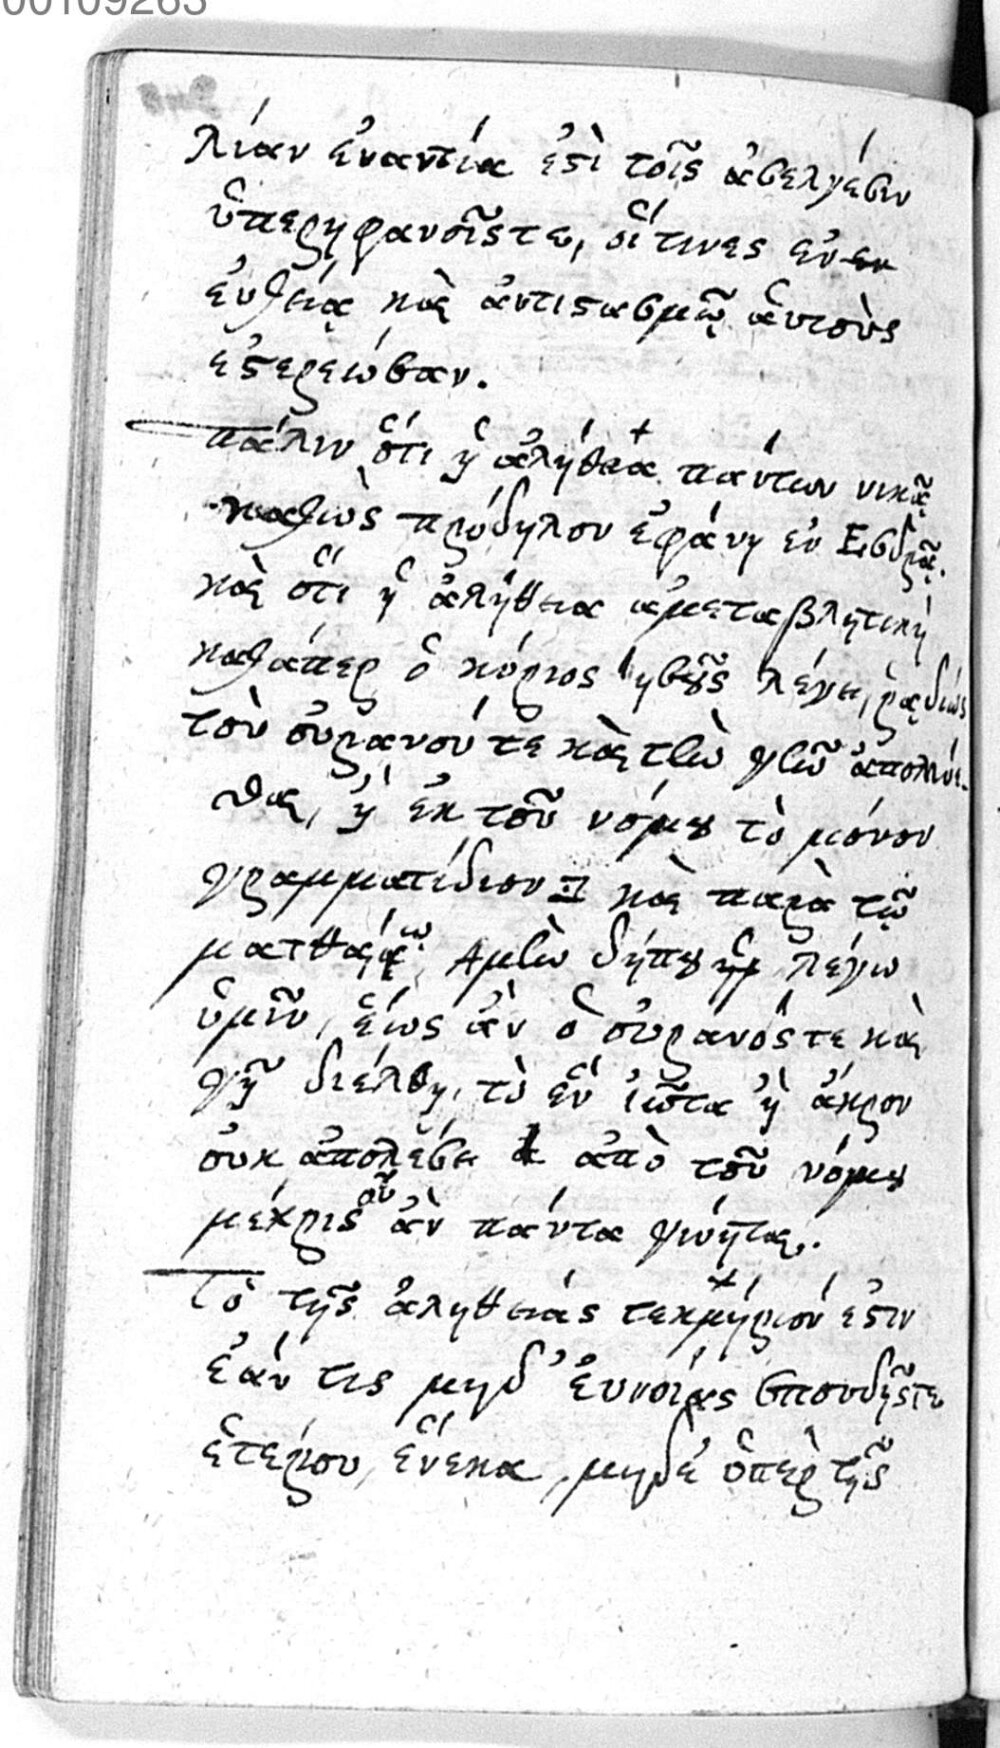 00109263
λίαν ἐναντία ἐστὶ τοῖς ἀσελγέσιν
ὑπερηφανοῖς τε, οἵτινες ἐν
ἐνθείᾳ καὶ ἀντιστασμῷ ἁυτοὺς
εστερειώσαν.
πάλιν ὅτι ἡ ἀλήθεια πάντων νικᾷ
καθὼς πρόδηλον ἐφάνη ἐν Εσδρᾷ.
καὶ ὅτι ἡ ἀλήθεια ἀμεταβλητική
καθάπερ ὁ κύριος ἰησοῦς λέγει, ῥᾳδίως
τὸν οὐρανόν τε καὶ τὴν γῆν ἀπολλύε-
σθαι, ἢ ἐκ τοῦ νόμου τὸ μιόνον
γραμματίδιον καὶ παρὰ τῷ
ματθαίῳ, Αμὴν δήπου λέγω
ὑμῖν, ἕως ἂν ὁ οὐρανός τε καὶ
γῆ διέλθῃ, τὸ ἓν ἰῶτα ἢ ἄκρον
οὐκ ἀπολέσει ἀπὸ τοῦ νόμου
μέχρις οὗ ἂν πάντα γινήται.
Τὸ τῆς ἀληθείας τεκμήριόν ἐστιν
ἐάν τις μηδ' ἐυνοίας σπουδῆς τε
ἑτέρου, ἕνεκα, μηδὲ ὑπὲρ τῆς